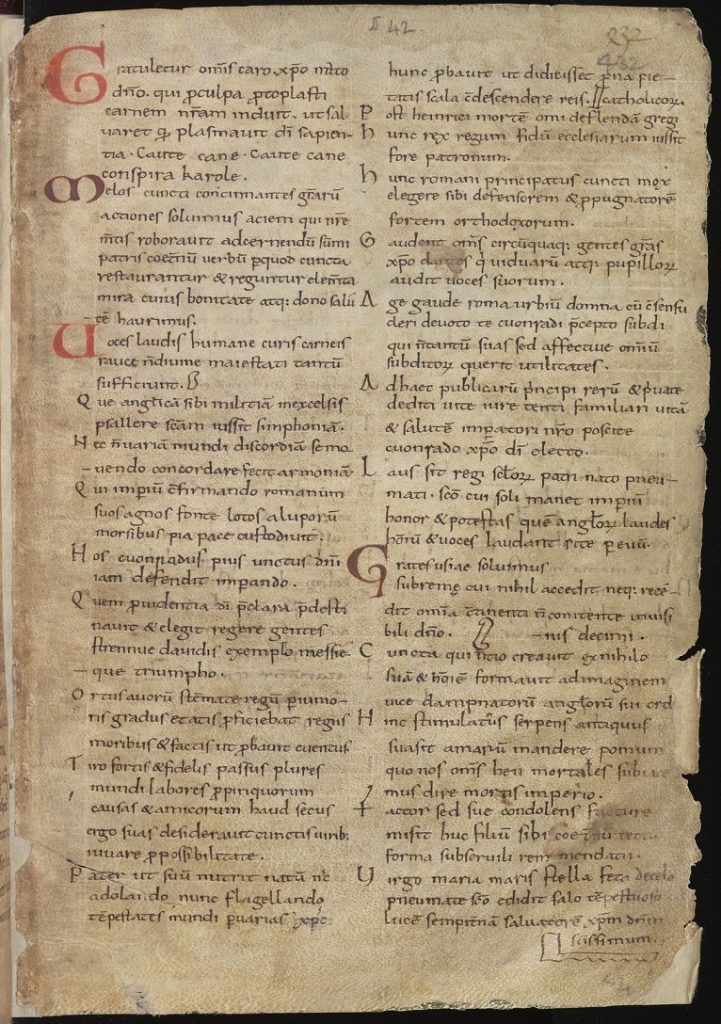 II 42
232
432
Gratuletur om̄is caro. xp̄o nato
dn̄o. qui ꝓculpa ꝓtoplasti
carnem nr̄am induit. ut sal
uaret qđ plasmauit dī sapien
tia. Caute cane. Caute cane
conspira karole.
Melos cuncti concinnantes gr̄arū
actiones soluimus aciem qui nr̄e
m̄tis roborauit adcernendū sūmi
patris coet̄nū uerbū ꝑquod cuncta
restaurantur & reguntur elem̄ta
mira cuius bonitate atq: dono salu
tē haurimus.
Uoces laudis humane curis carneis
rauce n̄ diuine maiestati tantū
sufficiunt.
Que anglicā sibi militiā inexcelsis
psallere sc̄am iussit simphoniā.
Het n̄uariā mundi discordiā semo
uendo concordare fecit armoniā.
Qui imperiū c̄firmando romanum
suos agnos fonte lotos aluporū
morsibus pia pace custodiuit.
Hos cuonradus pius unctus dn̄i
iam defendit impando.
Quem ꝓuidentia dī p̄clara p̄desti
nauit & elegit regere gentes
strennue dauidis exemplo messie
que triumpho.
Ortus auorū stēmate regū ꝑiunio
ris gradus etatis ꝓficiebat regiis
moribus & factis ut ꝓbauit euentus
Tiro fortis & fidelis passus plures
mundi labores ꝓpinquorum
causas & amicorum haud secus
ergo suas desiderauit cunctis uirib:
iuuare ꝓpossibilitate.
Pater ut suū nutrit natū n̄c
adolando nunc flagellando
tēpestates mundi ꝑuarias xp̄c
hunc ꝓbauit ut didicisset p̄na pie
tatis scala c̄descendere reis. catholicoꝝ
Post heinrici mortē omi deflendā gregi
hunc rex regum fidū ecclesiarum iussit
fore patronum.
hunc romani principatus cuncti mox
elegere sibi defensorem & ꝓpugnatorē
fortem orthodoxorum.
Gaudent om̄s circūquaq: gentes gr̄as
xp̄o dantes qđ uiduarū atq: pupilloꝝ
audit uoces suorum.
Age gaude roma urbiū domna cū c̄sensu
cleri deuoto te cuonradi p̄cepto subdi
qui n̄tantū suas sed affectiue omniū
subditoꝝ querit utilitates.
Adhaec publicarū p̄ncipi rerū & p̄uate
dediti uite iure tenti familiari uitā
& salutē imꝑatori nr̄o poscite
cuonrado xp̄o dī electo.
Laus sit regi scl̄oꝝ patri nato pneu
mati. sc̄o cui soli manet imperiū
honor & potestas quē angl̄oꝝ laudes
hōnū & uoces laudant rite ꝑeuū.
Grates usiae soluimus
supremę cui nihil accedit neq: rece
dit omīa c̄tinenti n̄ concitente inuisi
bili dn̄o. nus decimi.
Cuncta qui initio creauit exnihilo
suā & hōīe formauit adimaginem
uice dampnatorū angl̄orū sui ord
Hinc stimulatus serpens antiquus
suasit amarū mandere pomum
quo nos om̄s heu mortales subia
mus dire mortis imperio.
Factor sed sue condolens facture
misit huc filiū sibi coet̄nū
forma subseruili rem mendaci.
Uirgo maria maris stella feta de celo
pneumate sc̄o edidit salo tēpestuoso
lucē sempit̄nā saluatorē xp̄m dn̄m